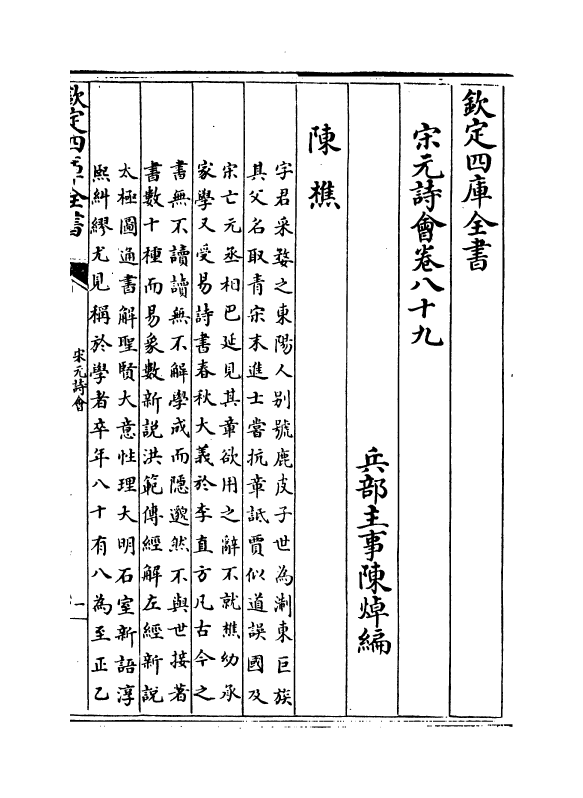 欽定四庫全書
宋元詩會卷八十九
兵部主事陳焯編
陳樵
字君采婺之東陽人别號鹿皮子世為浙東巨族
其父名取青宋末進士嘗抗章詆賈似道誤國及
宋亡元丞相巴延見其章欲用之辭不就樵幼承
家學又受易詩書春秋大義於李直方凡古今之
書無不讀讀無不解學成而隱邈然不與世接著
書數十種而易象數新説洪範傳經解左經新説
太極圖通書解聖賢大意性理大明石室新語淳
熙糾繆尤見稱於學者卒年八十有八為至正乙
欽定四庫全書
宋元詩會
一